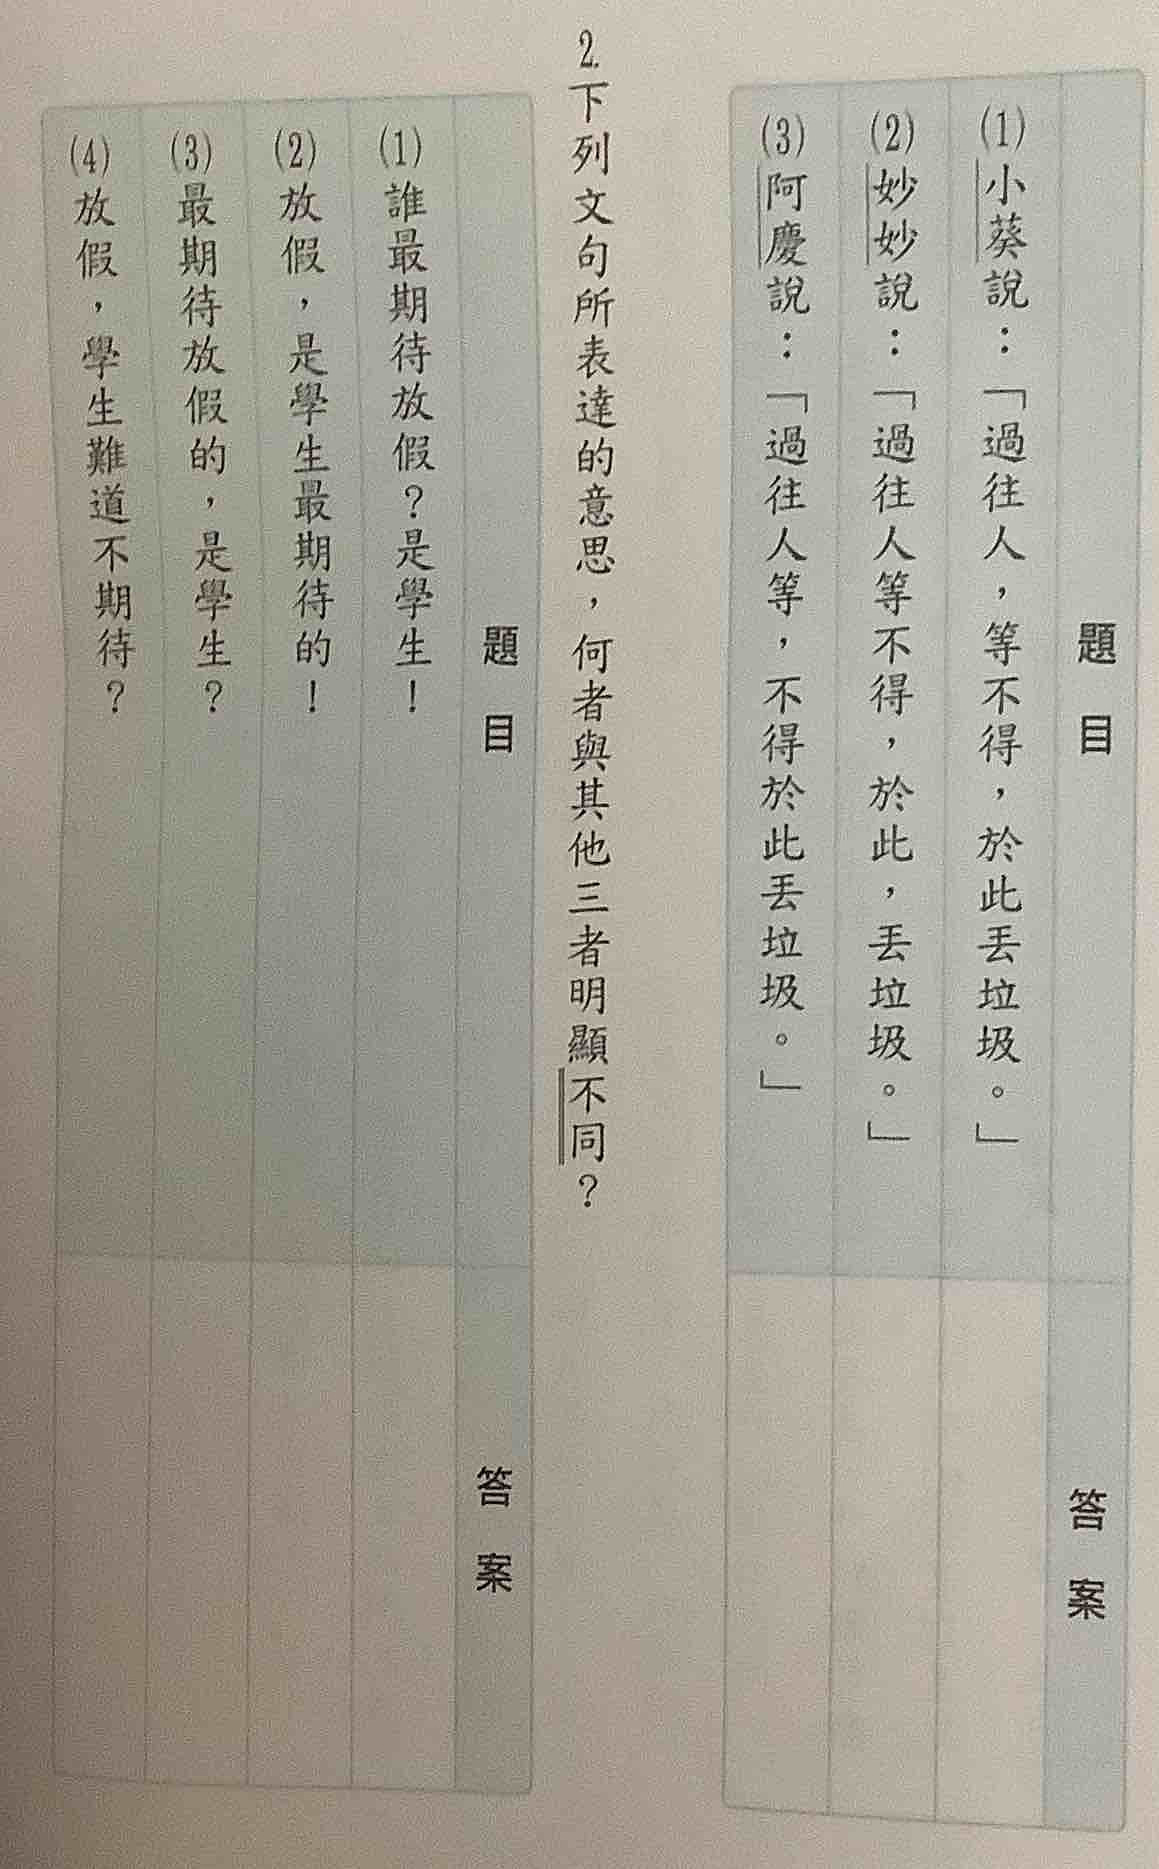 題目
答案
(1)小葵說：「過往人，等不得，於此丟垃圾。」
(2)妙妙說：「過往人等不得，於此，丟垃圾。」
(3)阿慶說：「過往人等，不得於此丟垃圾。」
2.下列文句所表達的意思，何者與其他三者明顯不同？
題目
答案
(1)誰最期待放假？是學生！
(2)放假，是學生最期待的！
(3)最期待放假的，是學生？
(4)放假，學生難道不期待？